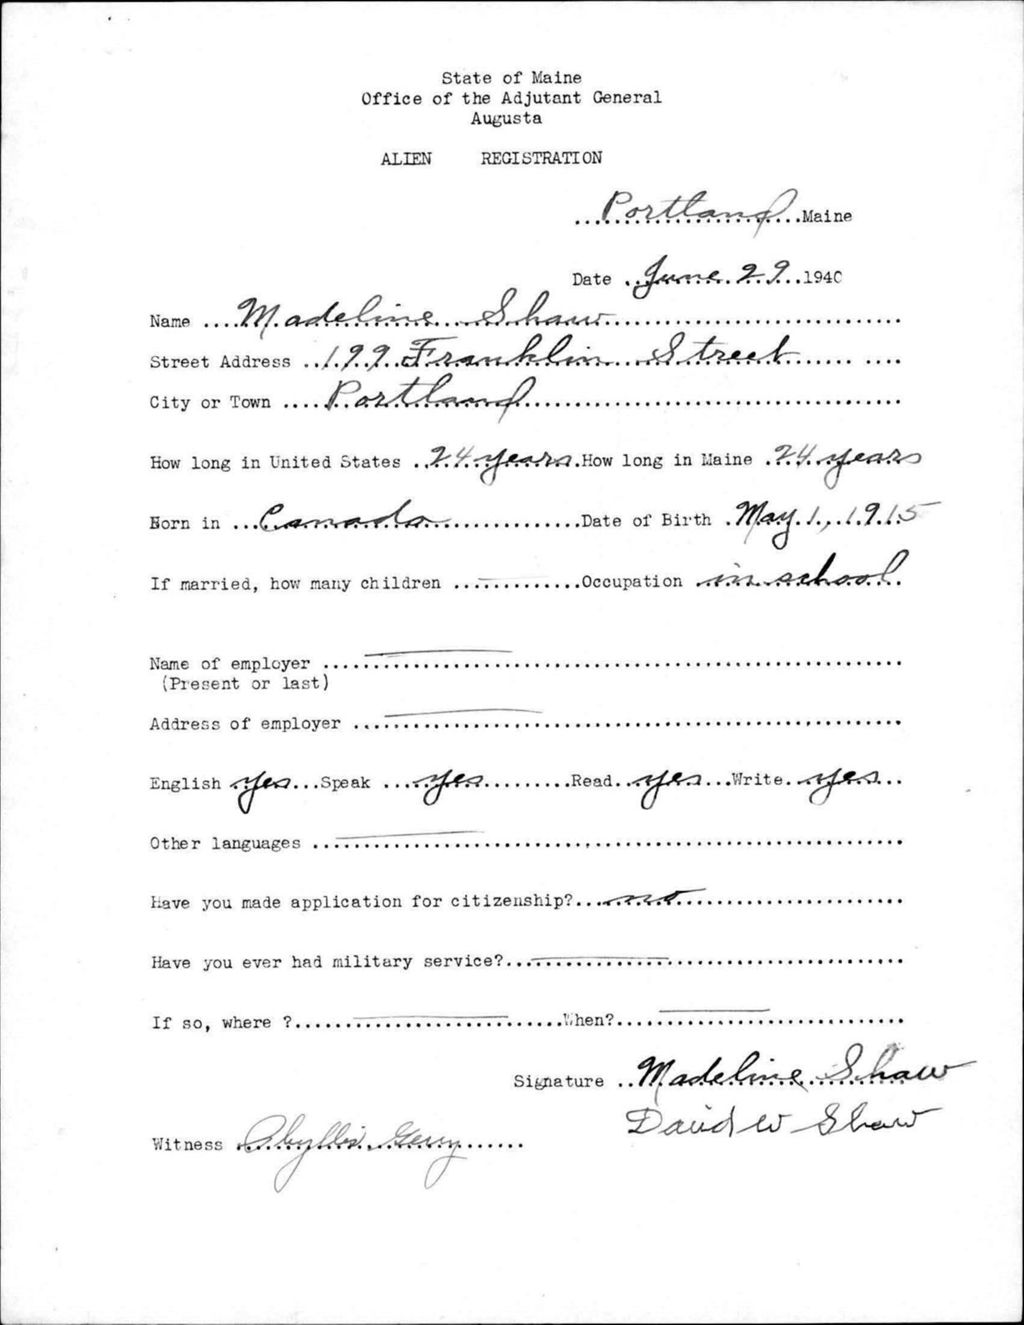 State of Maine
Office of the Adjutant General
Augusta
ALIEN REGISTRATION
Portland Maine
Date June 29 1940
Name Madeline Shaw
Street Address 199 Franklin Street
City or Town Portland
How long in United States 24 years How long in Maine 24 years
Born in Canada Date of Birth May 1, 1915
If married, how many children Occupation in school
Name of employer
(Present or last)
Address of employer
English yes Speak yes Read yes Write yes
Other languages
Have you made application for citizenship? no
Have you ever had military service?
If so, where ? When?
Signature Madeline Shaw
David W Shaw
Witness Phyllis Gerry